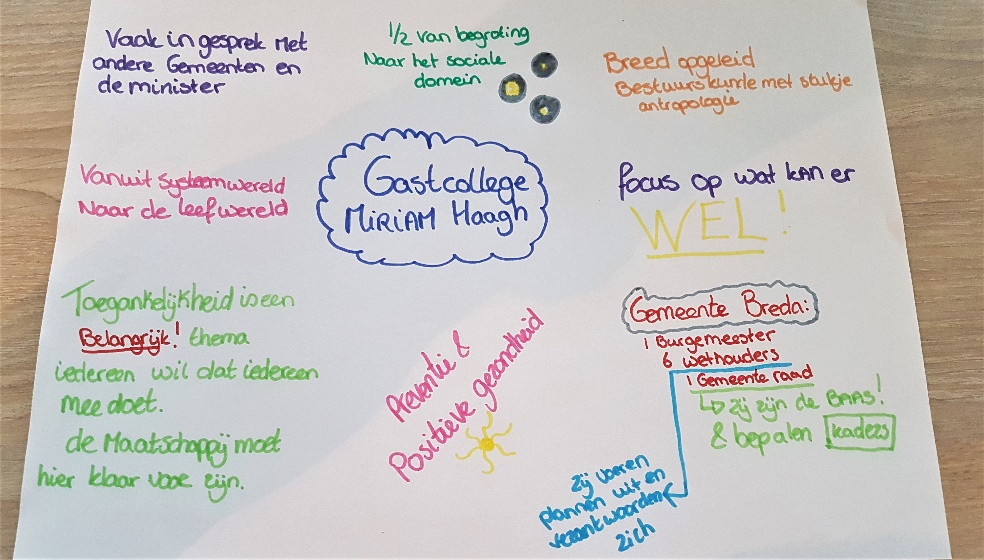 Vaak in gesprek met
andere Gemeenten en
de minister
1/2 van begroting
Naar het sociale
domein
Breed opgeleid
Bestuurskunde met stukje
antropologie
Vanuit systeemwereld
Naar de leefwereld
Gastcollege
MiRiAM Haagh
focus op wat kan er
WEL!
Toegankelijkheid is een
Belangrijk! thema
iedereen wil dat iedereen
mee doet.
de Maatschappij moet
hier klaar voor zijn.
Preventie &
Positieve gezondheid
Gemeente Breda:
1 Burgemeester
6 wethouders
1 Gemeente raad
↳ zij zijn de BAAS!
& bepalen kaders
zij voeren
plannen uit en
verantwoorden
zich